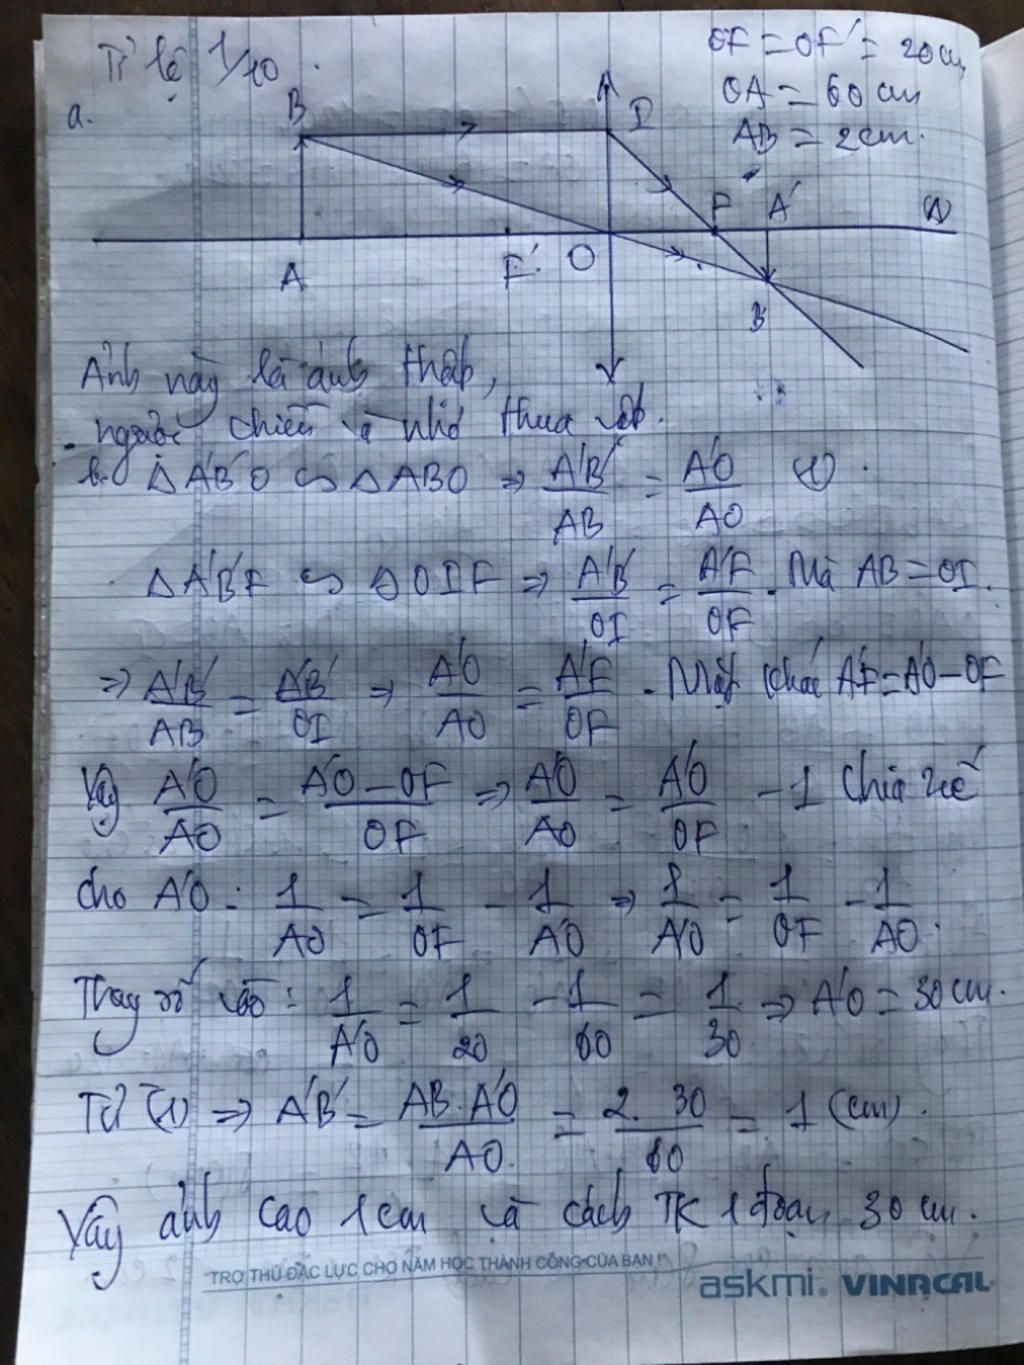 Tỉ lệ 1/10.
OF = OF' = 20cm
OA = 60 cm
AB = 2cm.
a.
B I
F A' (Δ)
A F' O B'
Ảnh này là ảnh thật,
ngược chiều và nhỏ thua vật.
b. ΔA'B'O ∽ ΔABO ⇒ A'B'/AB = A'O/AO (1).
ΔA'B'F ∽ ΔOIF ⇒ A'B'/OI = A'F/OF. Mà AB = OI.
⇒ A'B'/AB = A'B'/OI ⇒ A'O/AO = A'F/OF. Mặt khác A'F = A'O - OF
Vậy A'O/AO = A'O - OF/OF ⇒ A'O/AO = A'O/OF - 1 Chia 2 vế
cho A'O: 1/AO = 1/OF - 1/A'O ⇒ 1/A'O = 1/OF - 1/AO.
Thay số vào: 1/A'O = 1/20 - 1/60 = 1/30 ⇒ A'O = 30cm.
Từ (1) ⇒ A'B' = AB.A'O/AO = 2.30/60 = 1 (cm).
Vậy ảnh cao 1cm và cách TK 1 đoạn 30 cm.
"TRỢ THỦ ĐẮC LỰC CHO NĂM HỌC THÀNH CÔNG CỦA BẠN!"
askmi. VINACAL